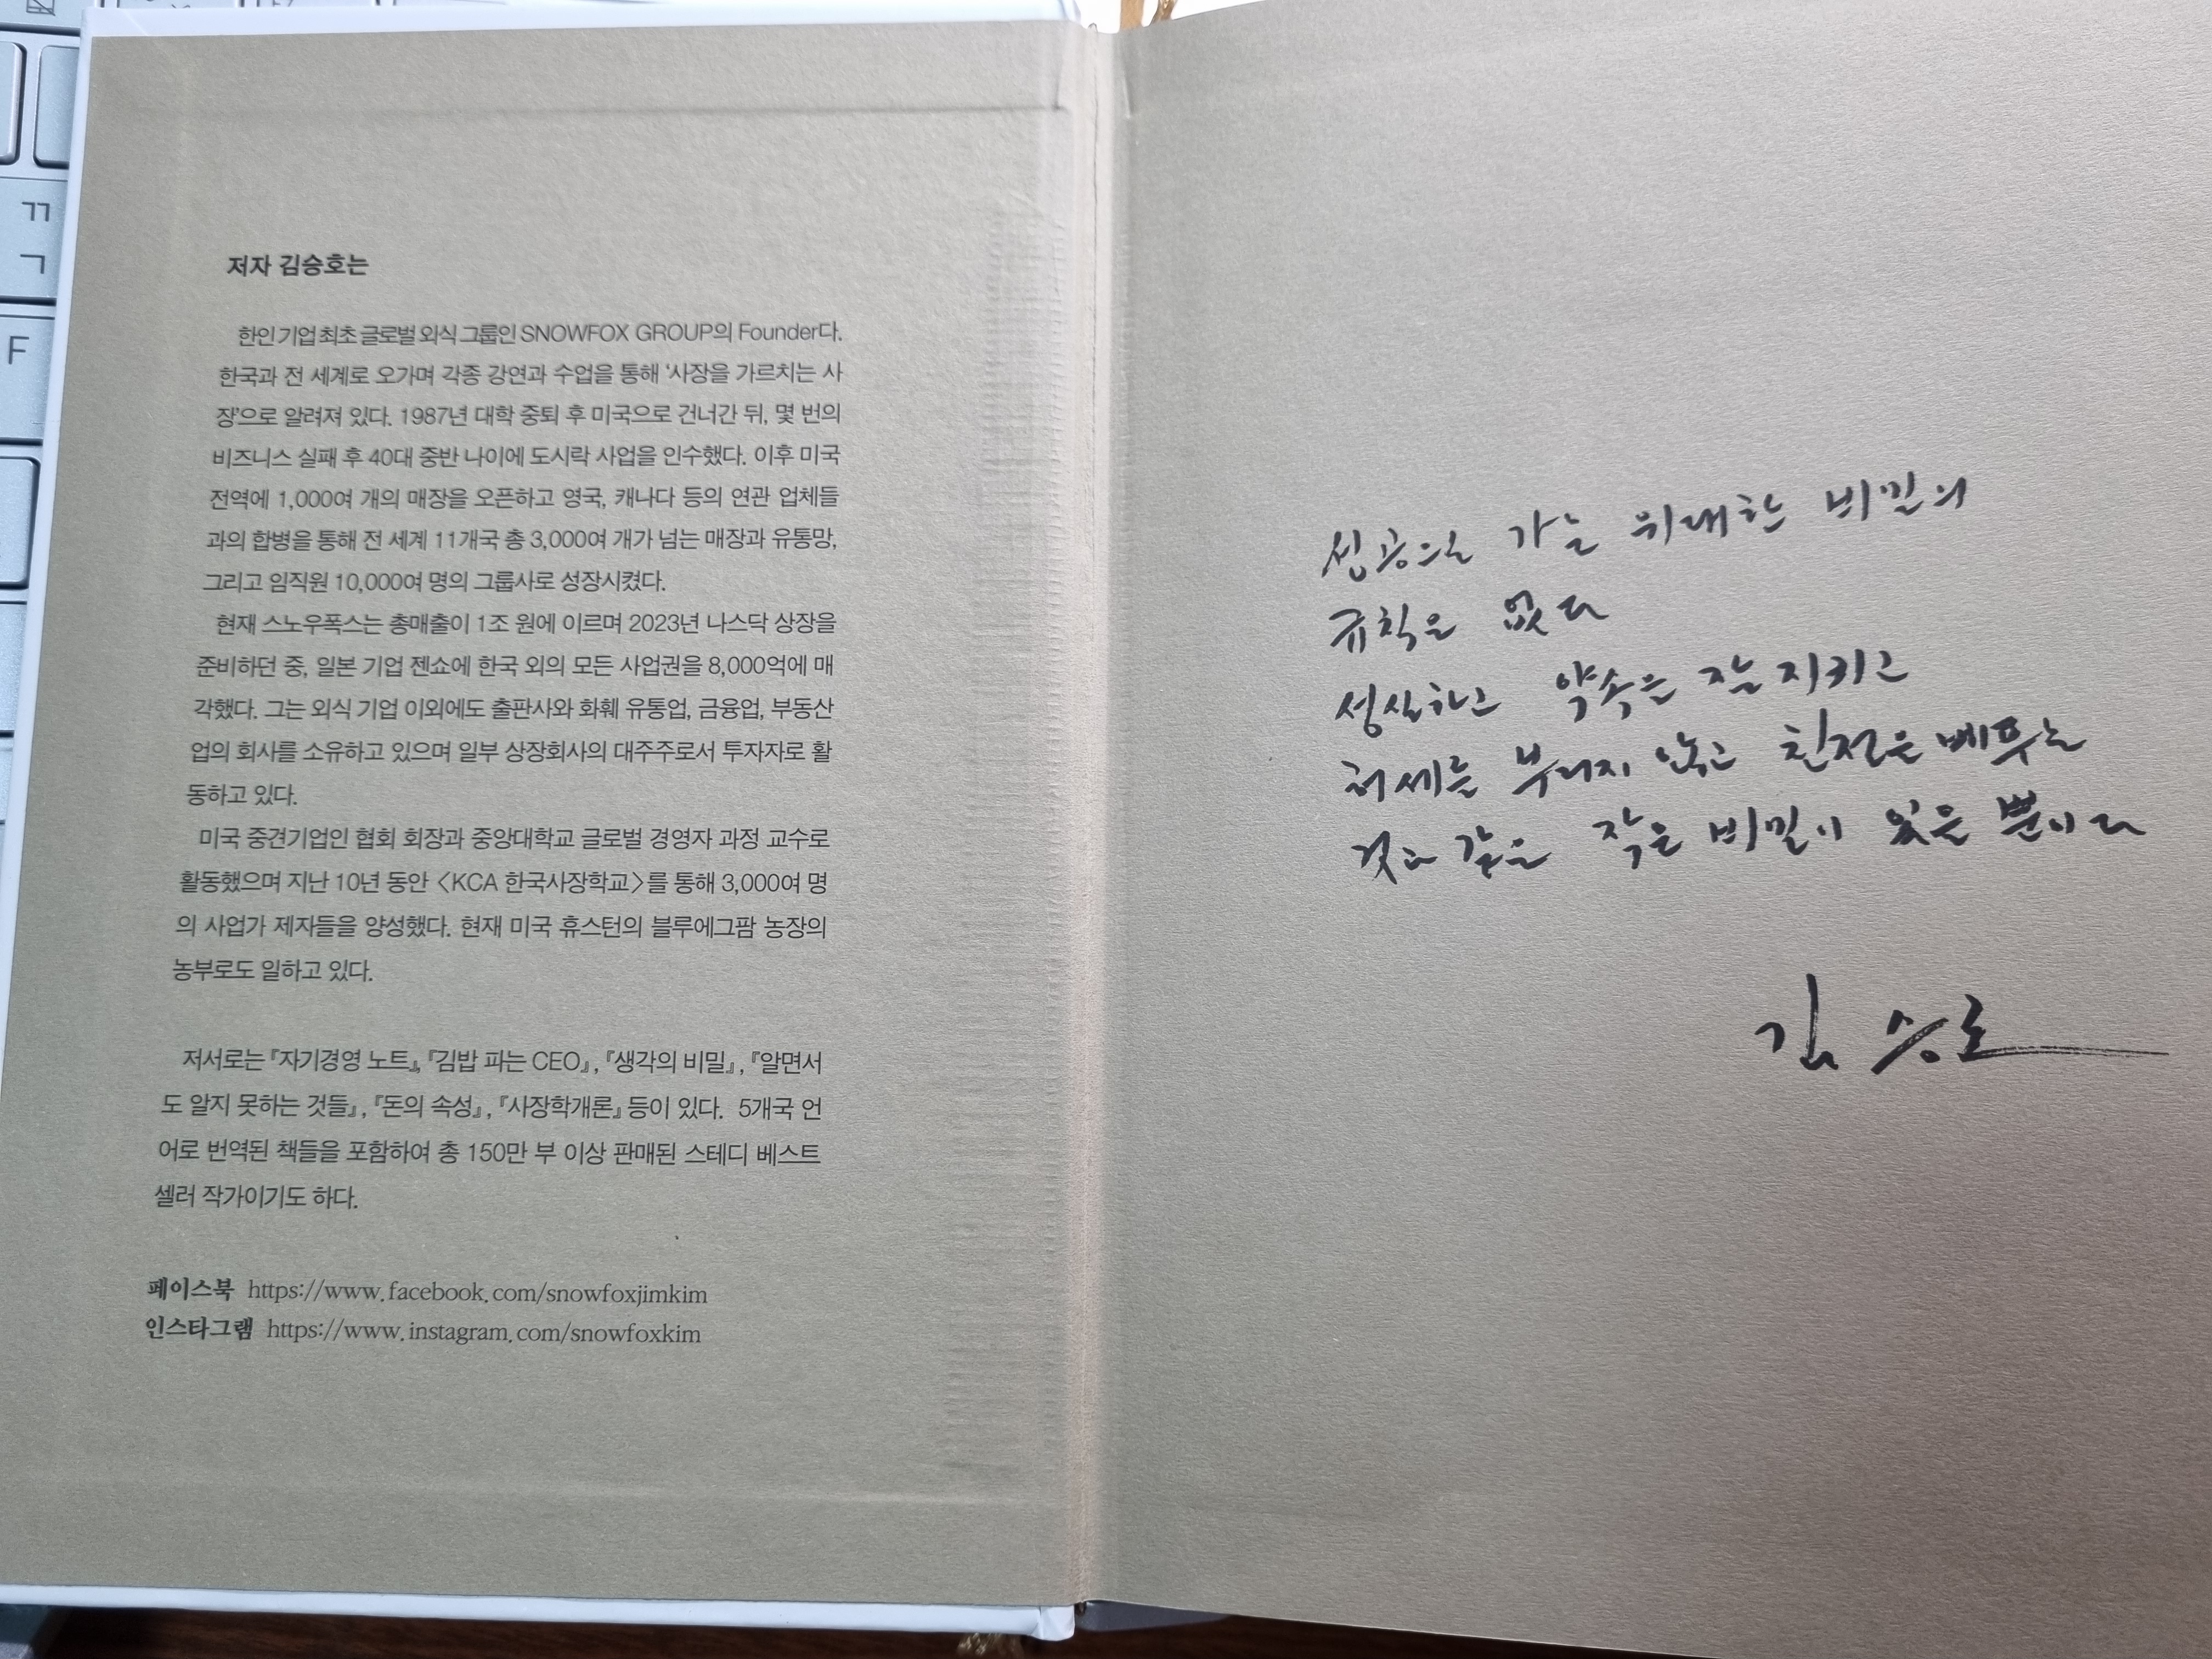 ㄲ
ㄱ
F
저자 김승호는
한인 기업 최초 글로벌 외식 그룹인 SNOWFOX GROUP의 Founder다.
한국과 전 세계로 오가며 각종 강연과 수업을 통해 ‘사장을 가르치는 사
장’으로 알려져 있다. 1987년 대학 중퇴 후 미국으로 건너간 뒤, 몇 번의
비즈니스 실패 후 40대 중반 나이에 도시락 사업을 인수했다. 이후 미국
전역에 1,000여 개의 매장을 오픈하고 영국, 캐나다 등의 연관 업체들
과의 합병을 통해 전 세계 11개국 총 3,000여 개가 넘는 매장과 유통망,
그리고 임직원 10,000여 명의 그룹사로 성장시켰다.
현재 스노우폭스는 총매출이 1조 원에 이르며 2023년 나스닥 상장을
준비하던 중, 일본 기업 젠쇼에 한국 외의 모든 사업권을 8,000억에 매
각했다. 그는 외식 기업 이외에도 출판사와 화훼 유통업, 금융업, 부동산
업의 회사를 소유하고 있으며 일부 상장회사의 대주주로서 투자자로 활
동하고 있다.
미국 중견기업인 협회 회장과 중앙대학교 글로벌 경영자 과정 교수로
활동했으며 지난 10년 동안 〈KCA 한국사장학교〉를 통해 3,000여 명
의 사업가 제자들을 양성했다. 현재 미국 휴스턴의 블루에그팜 농장의
농부로도 일하고 있다.
저서로는 『자기경영 노트』, 『김밥 파는 CEO』, 『생각의 비밀』, 『알면서
도 알지 못하는 것들』, 『돈의 속성』, 『사장학개론』 등이 있다. 5개국 언
어로 번역된 책들을 포함하여 총 150만 부 이상 판매된 스테디 베스트
셀러 작가이기도 하다.
페이스북 https://www.facebook.com/snowfoxjimkim
인스타그램 https://www.instagram.com/snowfoxkim
가는 위대한 비밀의
규칙은 없다
성실하고 약속을 잘 지키고
허세를 부리지 않고 친절을 베푸는
것과 같은 작은 비밀이 있을 뿐이다
김승호